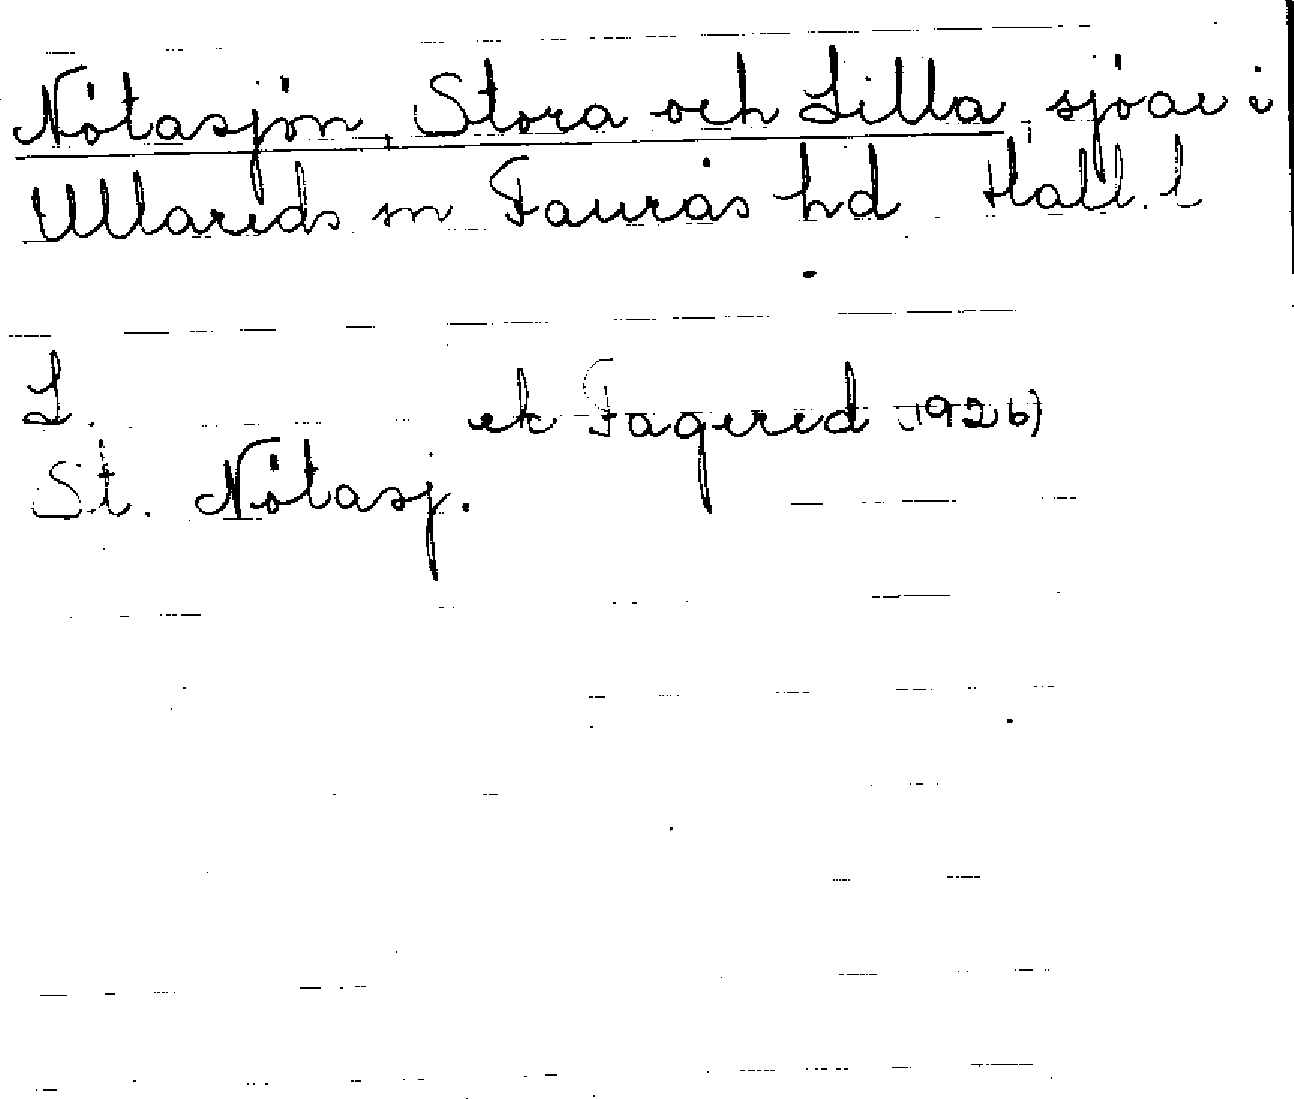 Nötasjön, Stora och Lilla, sjöar i
Ullareds sn Faurås hd Hall. l
L. ek Fagered (1926)
St. Nötasj.